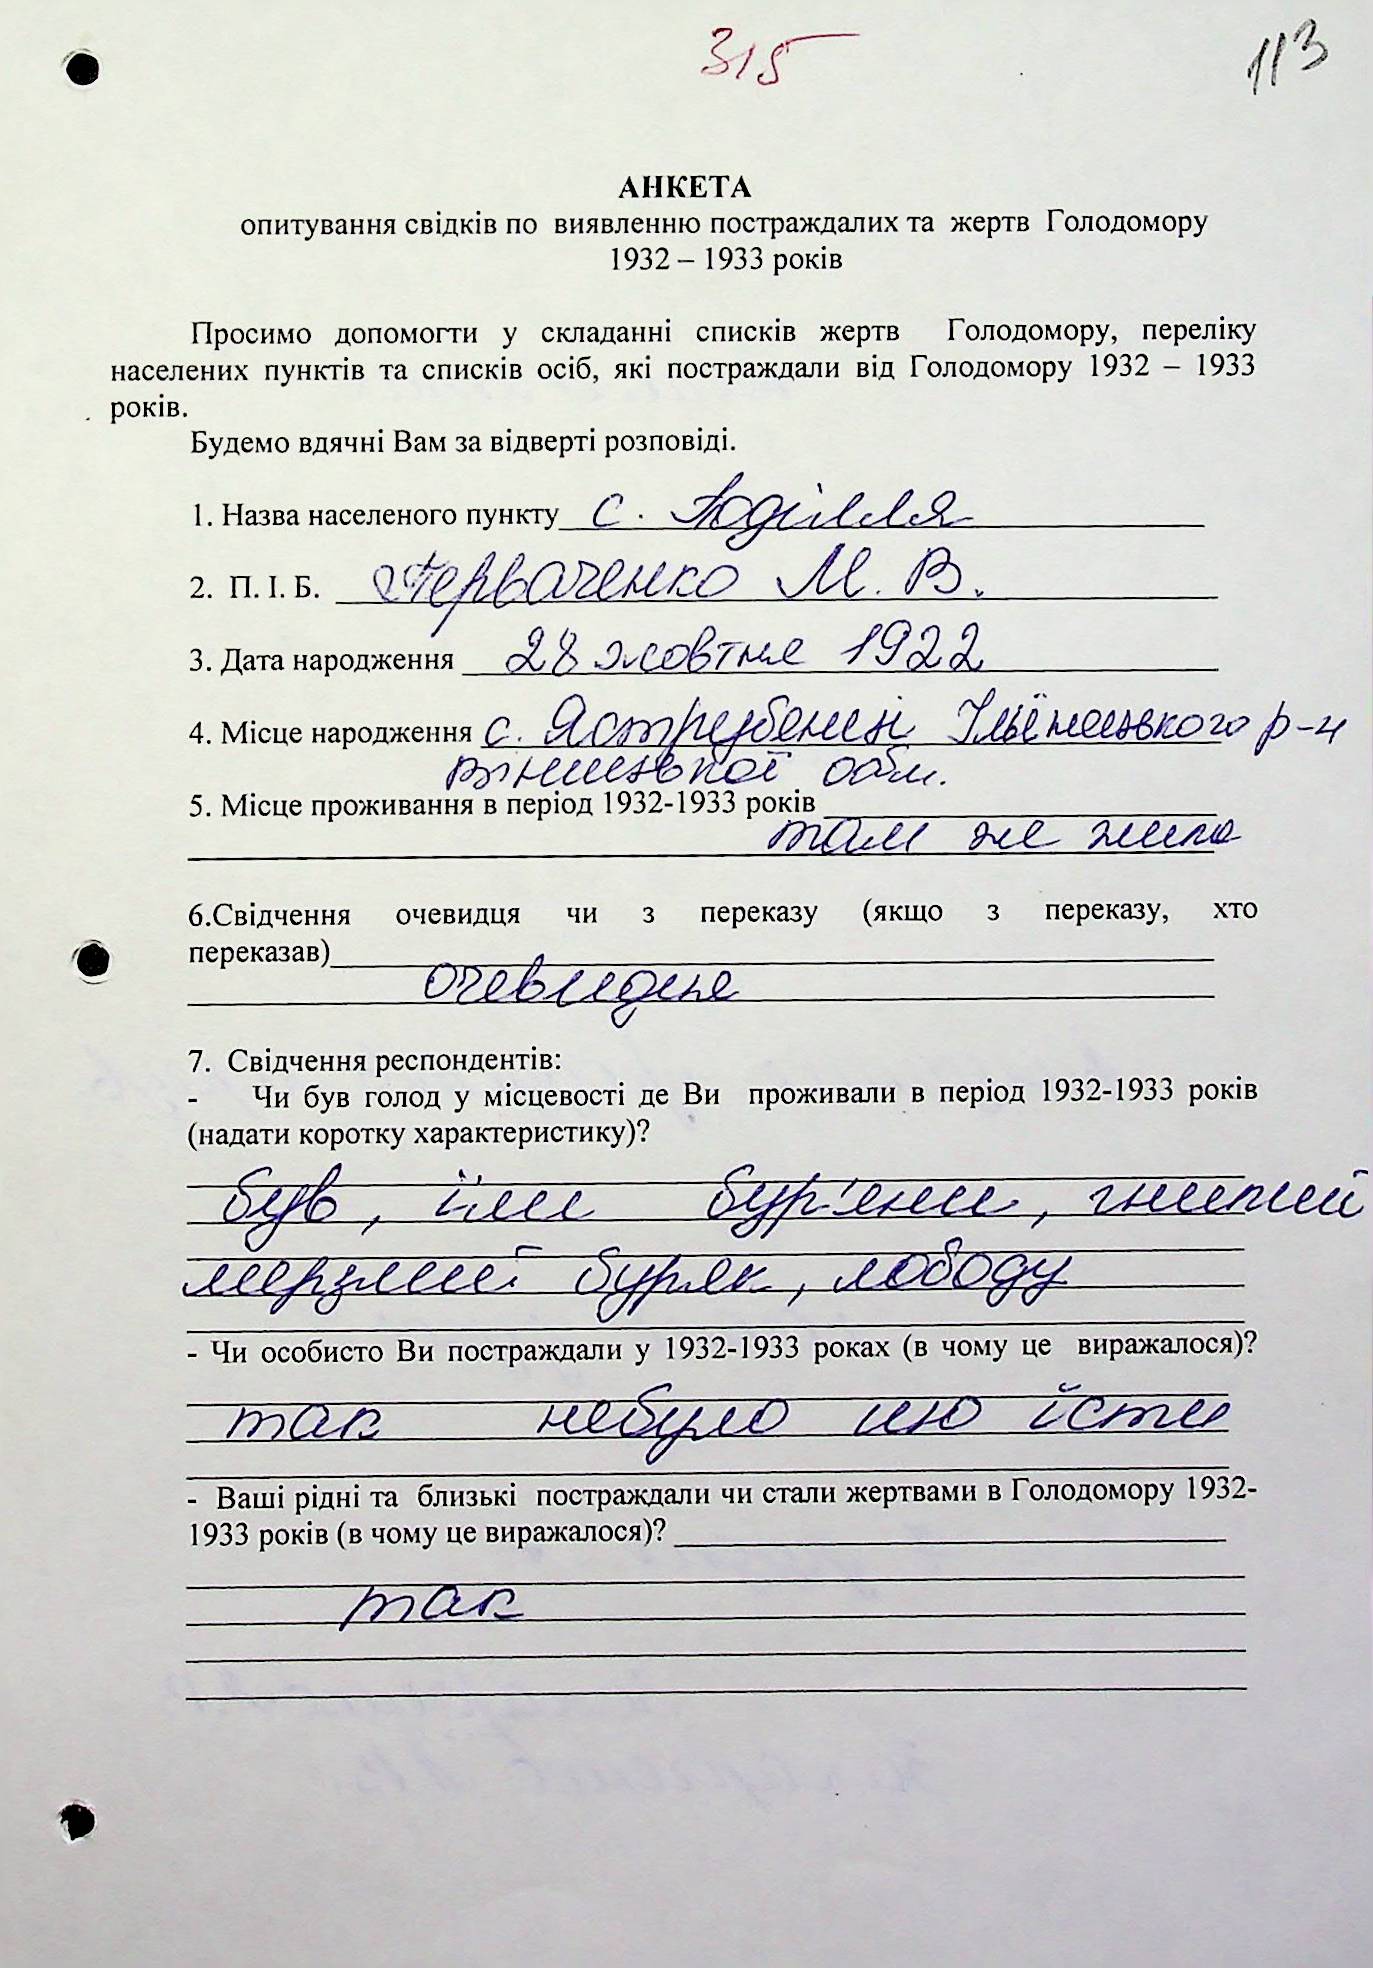 315
113
АНКЕТА
опитування свідків по виявленню постраждалих та жертв Голодомору
1932 – 1933 років
Просимо допомогти у складанні списків жертв Голодомору, переліку
населених пунктів та списків осіб, які постраждали від Голодомору 1932 – 1933
років.
Будемо вдячні Вам за відверті розповіді.
1. Назва населеного пункту с. Поділля
2. П. І. Б. Перваченко М. В.
3. Дата народження 28 жовтня 1922
4. Місце народження с. Яструбенці Ільїнецького р-н
Вінницької обл.
5. Місце проживання в період 1932-1933 років
там же жила
6.Свідчення очевидця чи з переказу (якщо з переказу, хто
переказав)
очевидця
7. Свідчення респондентів:
- Чи був голод у місцевості де Ви проживали в період 1932-1933 років
(надати коротку характеристику)?
був, їли бур'яни, гнилий
мерзлий буряк, лободу
- Чи особисто Ви постраждали у 1932-1933 роках (в чому це виражалося)?
так небуло що їсти
- Ваші рідні та близькі постраждали чи стали жертвами в Голодомору 1932-
1933 років (в чому це виражалося)?
так